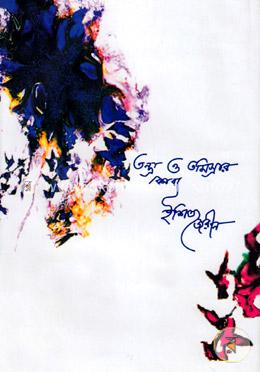 তন্দ্রা ও তমিস্রার
কাব্য
ইশিতা
জেরীন